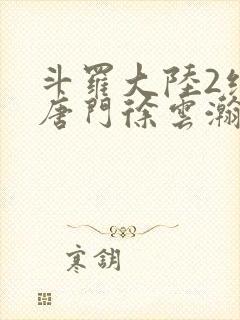 斗羅大陸2絕
唐門徐雲瀚
寒鈅